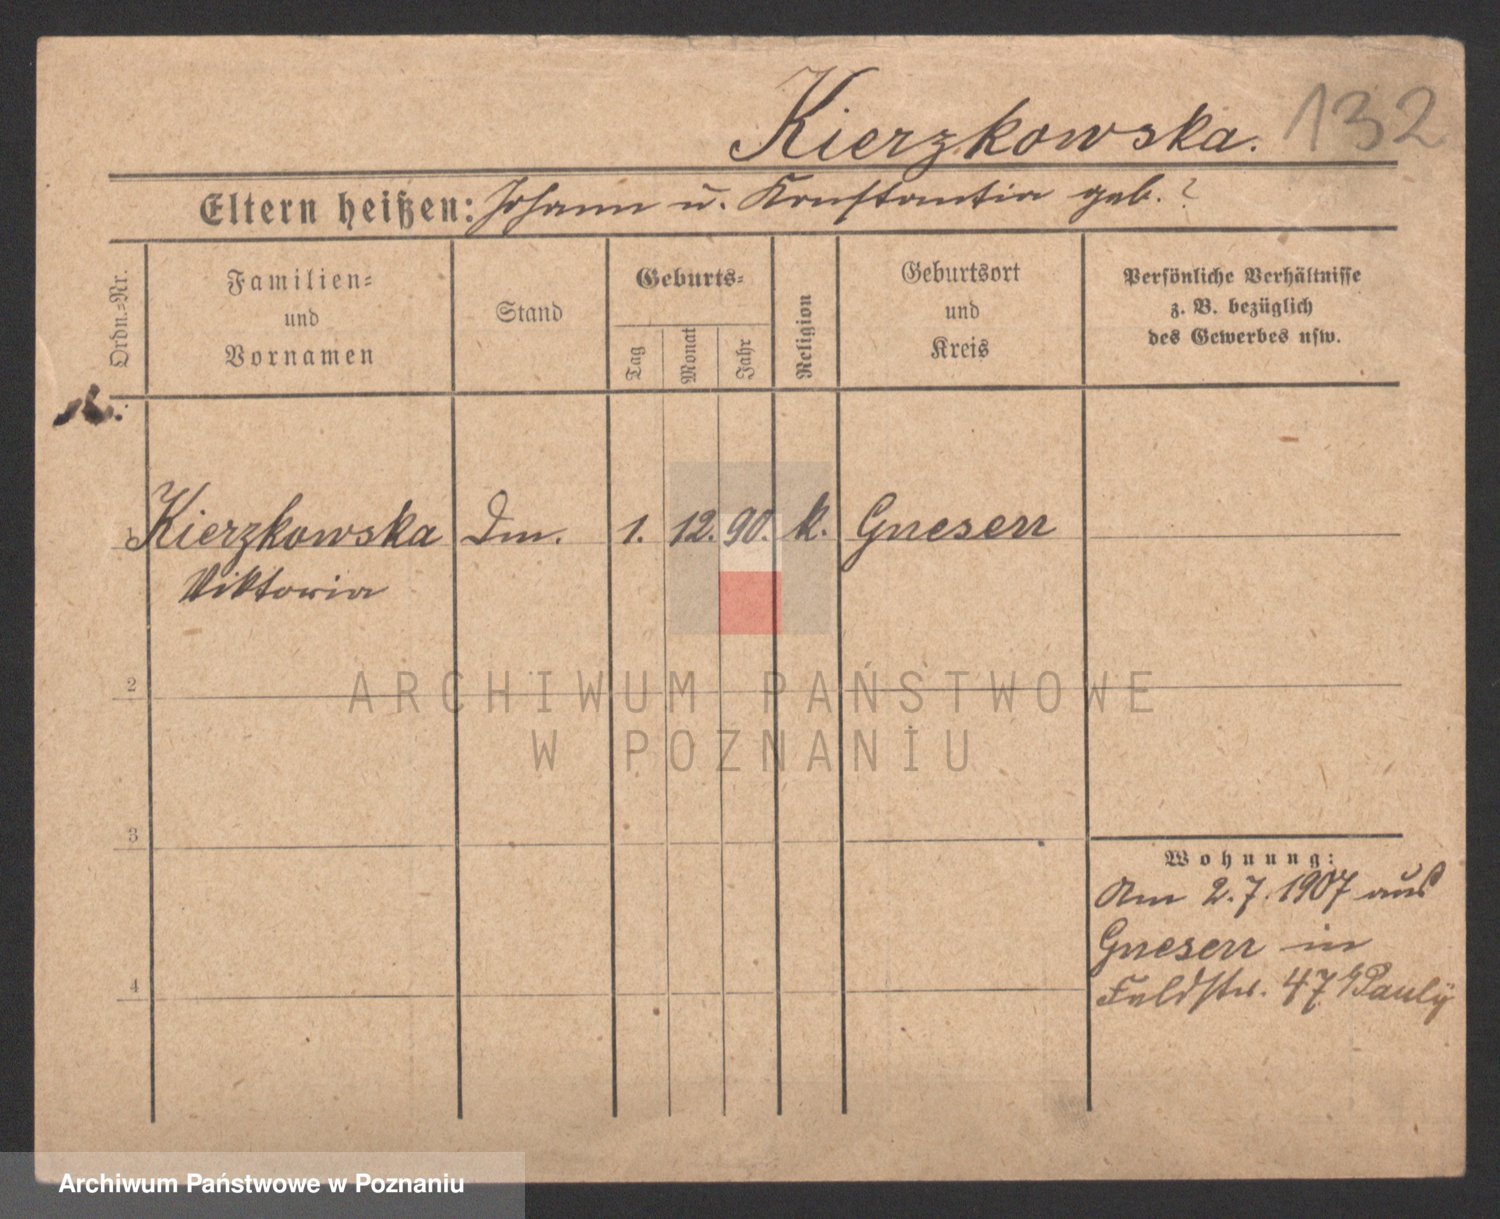 Kierzkowska. 132
Eltern heißen: Johann u. Konstantia geb. ?
Ordn.-Nr.
Familien-
und
Vornamen
Stand
Geburts-
Tag
Monat
Jahr
Religion
Geburtsort
und
Kreis
Persönliche Verhältnisse
z. B. bezüglich
des Gewerbes usw.
1 Kierzkowska Dm. 1. 12. 90. k. Gnesen
Viktoria
2
ARCHIWUM PAŃSTWOWE
W POZNANIU
3
Wohnung:
Am 2.7.1907 aus
Gnesen in
Feldstr. 47 Pauly
4
Archiwum Państwowe w Poznaniu